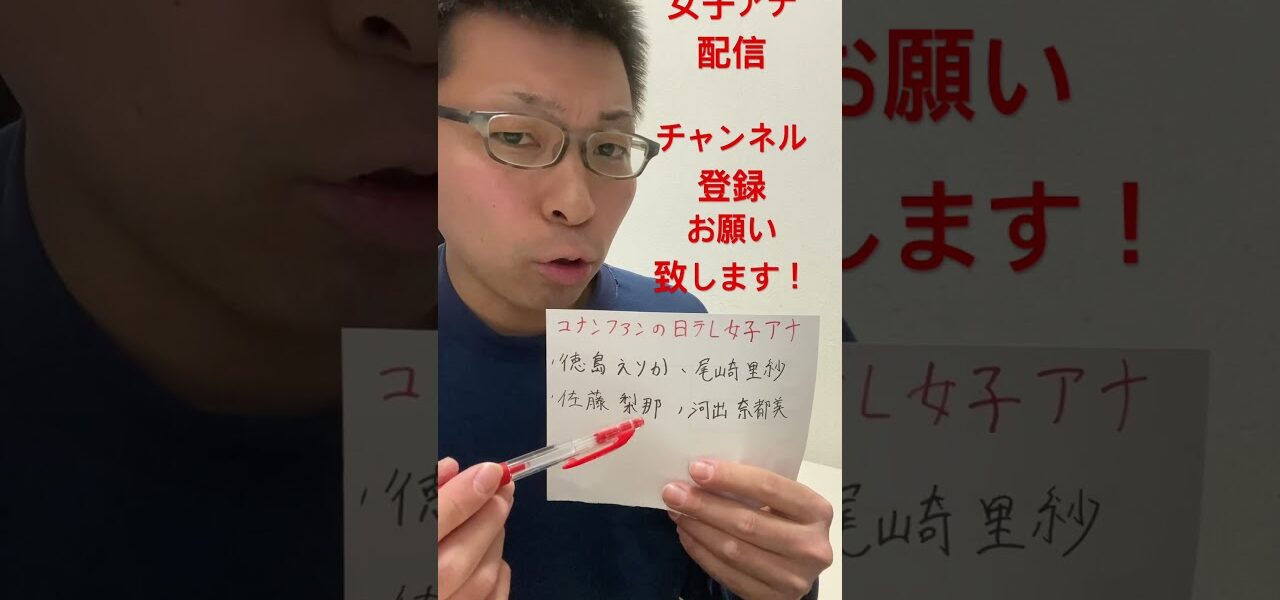 女子アナ
配信
チャンネル
登録
お願い
致します！
コナンファンの日テレ女子アナ
・徳島えりか、尾崎里紗
・佐藤梨那、河出奈都美
お願い
します！
コナ
レ女子アナ
・徳
尾崎里紗